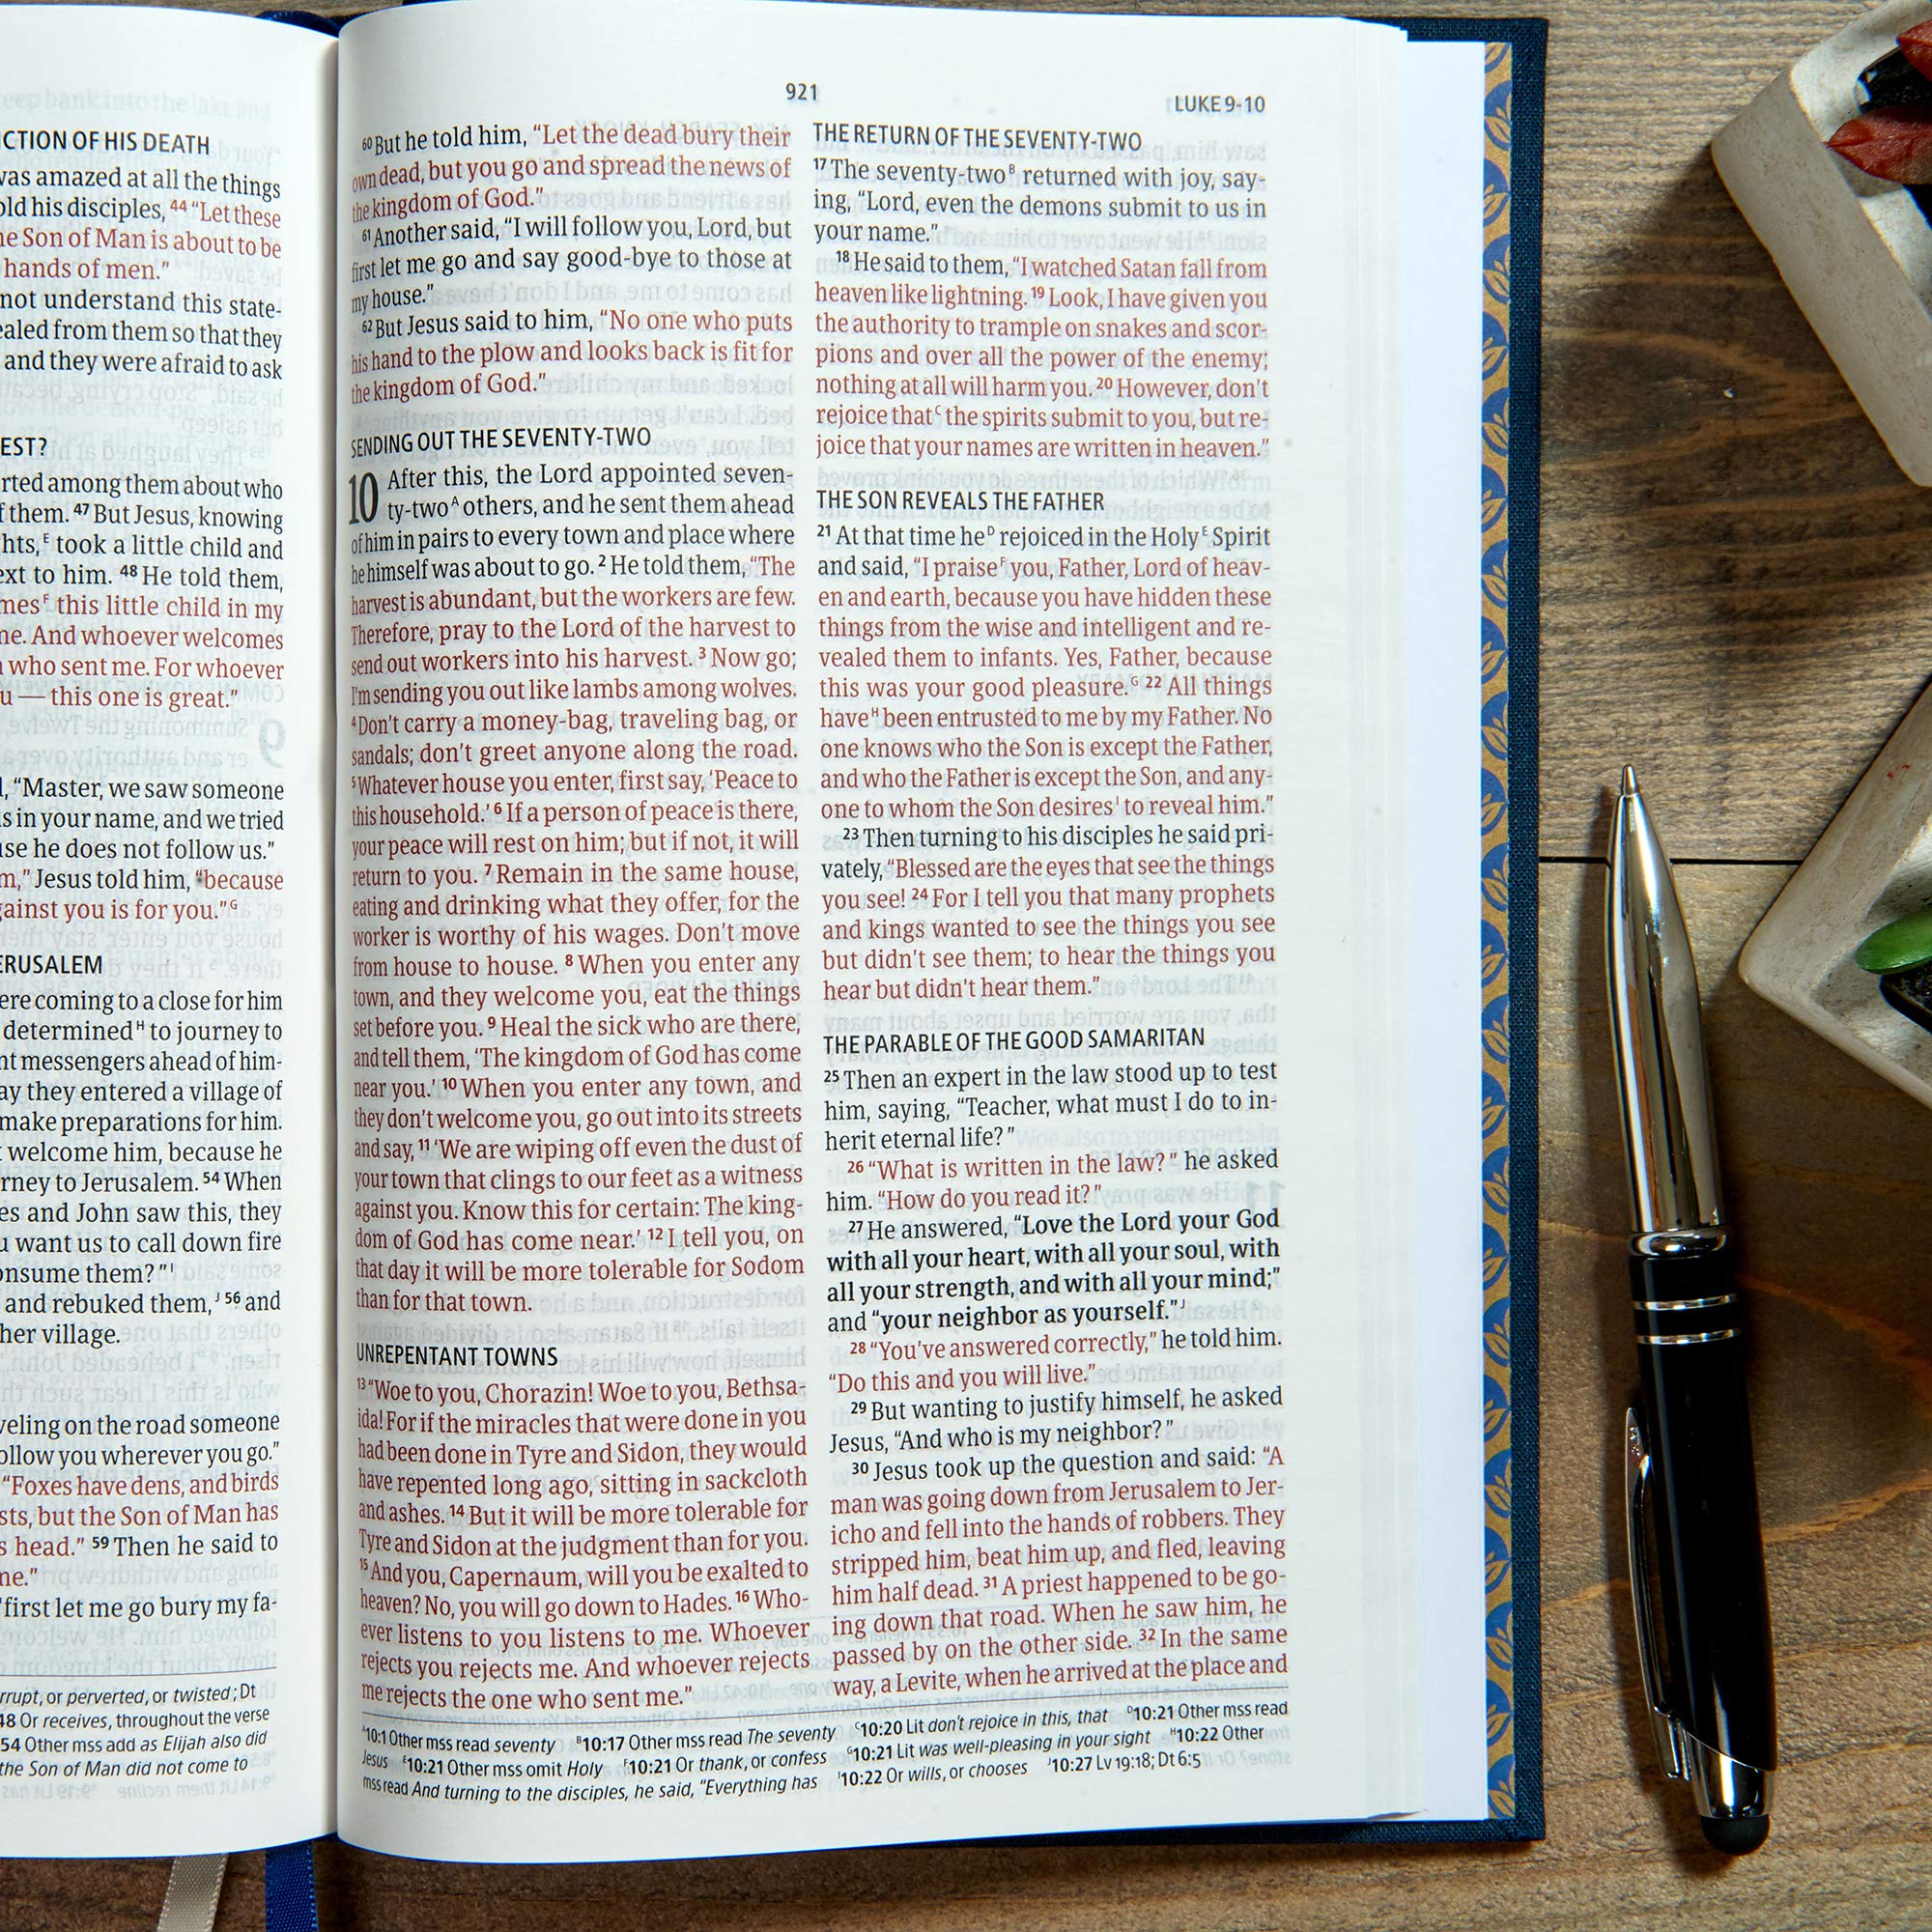 CTION OF HIS DEATH
was amazed at all the things
old his disciples, 44 “Let these
he Son of Man is about to be
hands of men.”
not understand this state-
ealed from them so that they
and they were afraid to ask
EST?
rted among them about who
f them. 47 But Jesus, knowing
hts,E took a little child and
ext to him. 48 He told them,
mesF this little child in my
me. And whoever welcomes
who sent me. For whoever
u — this one is great.”
“Master, we saw someone
s in your name, and we tried
use he does not follow us.”
m,” Jesus told him, “because
gainst you is for you.”G
ERUSALEM
ere coming to a close for him
determinedH to journey to
nt messengers ahead of him-
ay they entered a village of
make preparations for him.
t welcome him, because he
rney to Jerusalem. 54 When
es and John saw this, they
u want us to call down fire
onsume them?”I
and rebuked them,J 56 and
her village.
veling on the road someone
ollow you wherever you go.”
“Foxes have dens, and birds
sts, but the Son of Man has
s head.” 59 Then he said to
me.”
“first let me go bury my fa-
rrupt, or perverted, or twisted; Dt
48 Or receives, throughout the verse
54 Other mss add as Elijah also did
the Son of Man did not come to
921
LUKE 9–10
60 But he told him, “Let the dead bury their
own dead, but you go and spread the news of
the kingdom of God.”
61 Another said, “I will follow you, Lord, but
first let me go and say good-bye to those at
my house.”
62 But Jesus said to him, “No one who puts
his hand to the plow and looks back is fit for
the kingdom of God.”
SENDING OUT THE SEVENTY-TWO
10 After this, the Lord appointed seven-
ty-twoA others, and he sent them ahead
of him in pairs to every town and place where
he himself was about to go. 2 He told them, “The
harvest is abundant, but the workers are few.
Therefore, pray to the Lord of the harvest to
send out workers into his harvest. 3 Now go;
I’m sending you out like lambs among wolves.
4 Don’t carry a money-bag, traveling bag, or
sandals; don’t greet anyone along the road.
5 Whatever house you enter, first say, ‘Peace to
this household.’ 6 If a person of peace is there,
your peace will rest on him; but if not, it will
return to you. 7 Remain in the same house,
eating and drinking what they offer, for the
worker is worthy of his wages. Don’t move
from house to house. 8 When you enter any
town, and they welcome you, eat the things
set before you. 9 Heal the sick who are there,
and tell them, ‘The kingdom of God has come
near you.’ 10 When you enter any town, and
they don’t welcome you, go out into its streets
and say, 11 ‘We are wiping off even the dust of
your town that clings to our feet as a witness
against you. Know this for certain: The king-
dom of God has come near.’ 12 I tell you, on
that day it will be more tolerable for Sodom
than for that town.
UNREPENTANT TOWNS
13 “Woe to you, Chorazin! Woe to you, Bethsa-
ida! For if the miracles that were done in you
had been done in Tyre and Sidon, they would
have repented long ago, sitting in sackcloth
and ashes. 14 But it will be more tolerable for
Tyre and Sidon at the judgment than for you.
15 And you, Capernaum, will you be exalted to
heaven? No, you will go down to Hades. 16 Who-
ever listens to you listens to me. Whoever
rejects you rejects me. And whoever rejects
me rejects the one who sent me.”
THE RETURN OF THE SEVENTY-TWO
17 The seventy-twoB returned with joy, say-
ing, “Lord, even the demons submit to us in
your name.”
18 He said to them, “I watched Satan fall from
heaven like lightning. 19 Look, I have given you
the authority to trample on snakes and scor-
pions and over all the power of the enemy;
nothing at all will harm you. 20 However, don’t
rejoice thatC the spirits submit to you, but re-
joice that your names are written in heaven.”
THE SON REVEALS THE FATHER
21 At that time heD rejoiced in the HolyE Spirit
and said, “I praiseF you, Father, Lord of heav-
en and earth, because you have hidden these
things from the wise and intelligent and re-
vealed them to infants. Yes, Father, because
this was your good pleasure.G 22 All things
haveH been entrusted to me by my Father. No
one knows who the Son is except the Father,
and who the Father is except the Son, and any-
one to whom the Son desiresI to reveal him.”
23 Then turning to his disciples he said pri-
vately, “Blessed are the eyes that see the things
you see! 24 For I tell you that many prophets
and kings wanted to see the things you see
but didn’t see them; to hear the things you
hear but didn’t hear them.”
THE PARABLE OF THE GOOD SAMARITAN
25 Then an expert in the law stood up to test
him, saying, “Teacher, what must I do to in-
herit eternal life?”
26 “What is written in the law?” he asked
him. “How do you read it?”
27 He answered, “Love the Lord your God
with all your heart, with all your soul, with
all your strength, and with all your mind;”
and “your neighbor as yourself.”J
28 “You’ve answered correctly,” he told him.
“Do this and you will live.”
29 But wanting to justify himself, he asked
Jesus, “And who is my neighbor?”
30 Jesus took up the question and said: “A
man was going down from Jerusalem to Jer-
icho and fell into the hands of robbers. They
stripped him, beat him up, and fled, leaving
him half dead. 31 A priest happened to be go-
ing down that road. When he saw him, he
passed by on the other side. 32 In the same
way, a Levite, when he arrived at the place and
A10:1 Other mss read seventy B10:17 Other mss read The seventy C10:20 Lit don’t rejoice in this, that D10:21 Other mss read
Jesus E10:21 Other mss omit Holy F10:21 Or thank, or confess G10:21 Lit was well-pleasing in your sight H10:22 Other
mss read And turning to the disciples, he said, “Everything has I10:22 Or wills, or chooses J10:27 Lv 19:18; Dt 6:5